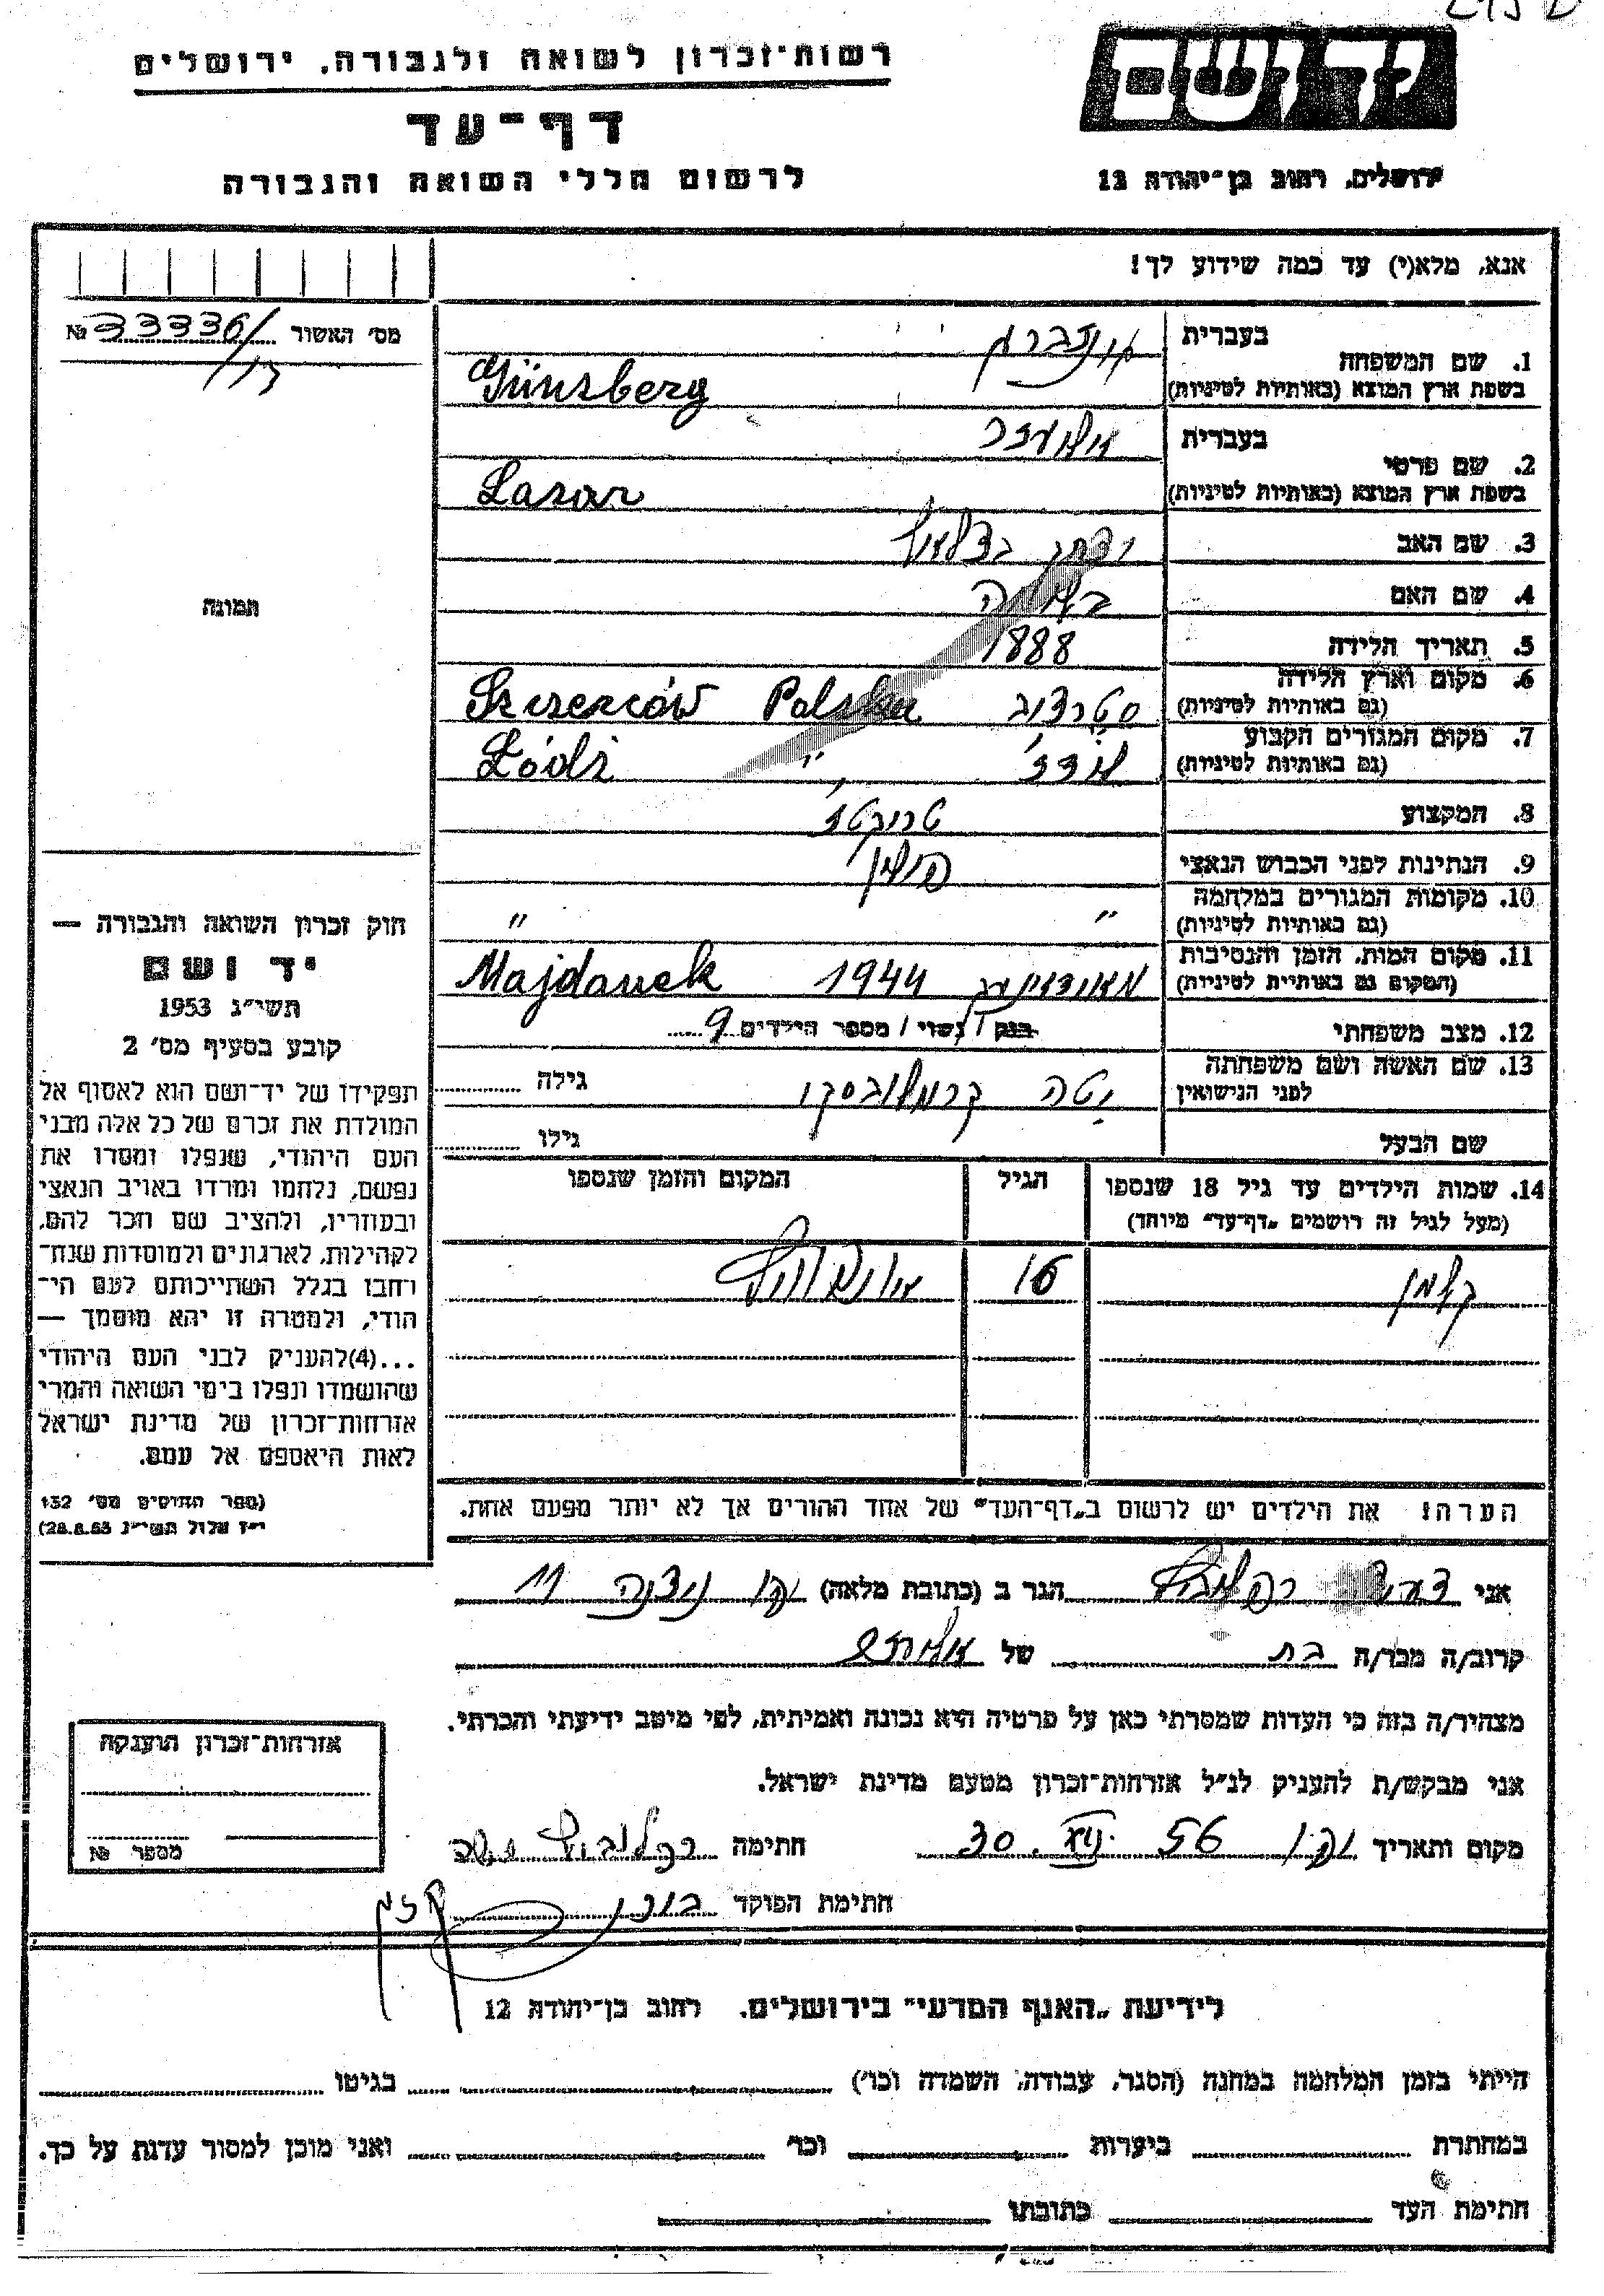 רשות־זכרון לשואה ולגבורה, ירושלים
דף־עד
לרשום חללי השואה והגבורה
יד ושם
ירושלים, רחוב בן־יהודה 12
אנא, מלא(י) עד כמה שידוע לך!
מס' האשור № 33336/
1. שם המשפחה
בעברית
בשפת ארץ המוצא (באותיות לטיניות) Günsberg
2. שם פרטי
בעברית
בשפת ארץ המוצא (באותיות לטיניות) Lasar
3. שם האב
4. שם האם
5. תאריך הלידה 1888
6. מקום וארץ הלידה
(גם באותיות לטיניות) Szczerców Polska
7. מקום המגורים הקבוע
(גם באותיות לטיניות) לודז' " Łódź
8. המקצוע
9. הנתינות לפני הכבוש הנאצי פולין
10. מקומות המגורים במלחמה
(גם באותיות לטיניות) " "
11. מקום המות, הזמן והנסיבות
(המקום גם באותיות לטיניות) 1944 Majdanek
12. מצב משפחתי רווק / נשוי / מספר הילדים 9
13. שם האשה ושם משפחתה
לפני הנישואין יטה גילה
שם הבעל גילו
14. שמות הילדים עד גיל 18 שנספו
(מעל לגיל זה רושמים "דף־עד" מיוחד)
הגיל
המקום והזמן שנספו
קלמן 16 אושוויץ
הערה: את הילדים יש לרשום ב"דף־העד" של אחד ההורים אך לא יותר מפעם אחת.
תמונה
חוק זכרון השואה והגבורה —
יד ושם
תשי"ג 1953
קובע בסעיף מס' 2
תפקידו של יד־ושם הוא לאסוף אל
המולדת את זכרם של כל אלה מבני
העם היהודי, שנפלו ומסרו את
נפשם, נלחמו ומרדו באויב הנאצי
ובעוזריו, ולהציב שם וזכר להם,
לקהילות, לארגונים ולמוסדות שנח־
רחבו בגלל השתייכותם לעם הי־
הודי, ולמטרה זו יהא מוסמך —
...(4)להעניק לבני העם היהודי
שהושמדו ונפלו בימי השואה והמרי
אזרחות־זכרון של מדינת ישראל
לאות היאספם אל עמם.
(ספר החוקים מס' 132
י"ז אלול תשי"ג 28.8.53)
אני הגר ב (כתובת מלאה) 11
קרוב/ה מכר/ה בת של
מצהיר/ה בזה כי העדות שמסרתי כאן על פרטיה היא נכונה ואמיתית, לפי מיטב ידיעתי והכרתי.
אני מבקש/ת להעניק לנ"ל אזרחות־זכרון מטעם מדינת ישראל.
מקום ותאריך 30. 56 חתימה
חתימת הפוקד
אזרחות־זכרון הוענקה
מספר №
לידיעת "האגף המדעי" בירושלים. רחוב בן־יהודה 12
הייתי בזמן המלחמה במחנה (הסגר, עבודה, השמדה וכו') בגיטו
במחתרת ביערות וכו' ואני מוכן למסור עדות על כך.
חתימת העד כתובתו